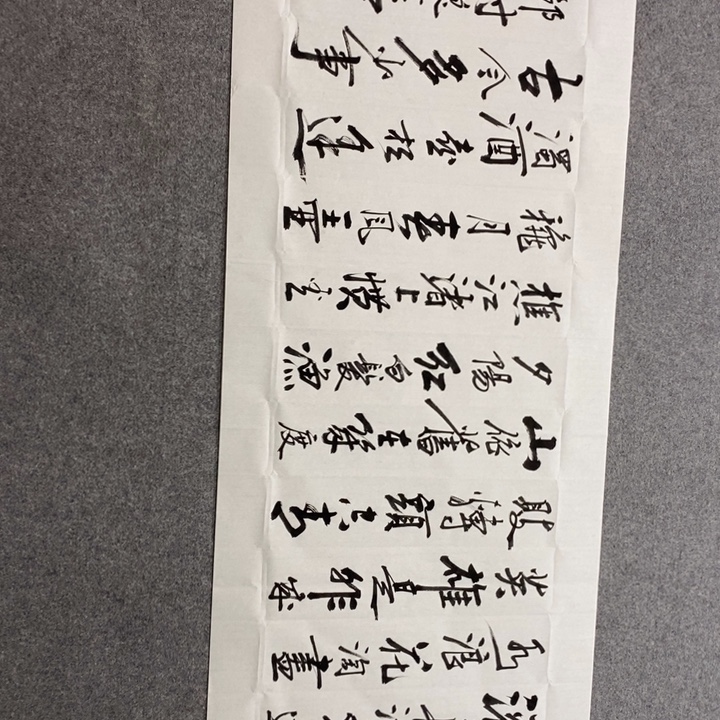 水浪花淘盡
英雄是非成
敗轉頭空青
山依舊在幾度
夕陽紅白髮漁
樵江渚上慣看
穐月春風一壺
濁酒喜相逢
古今多少事